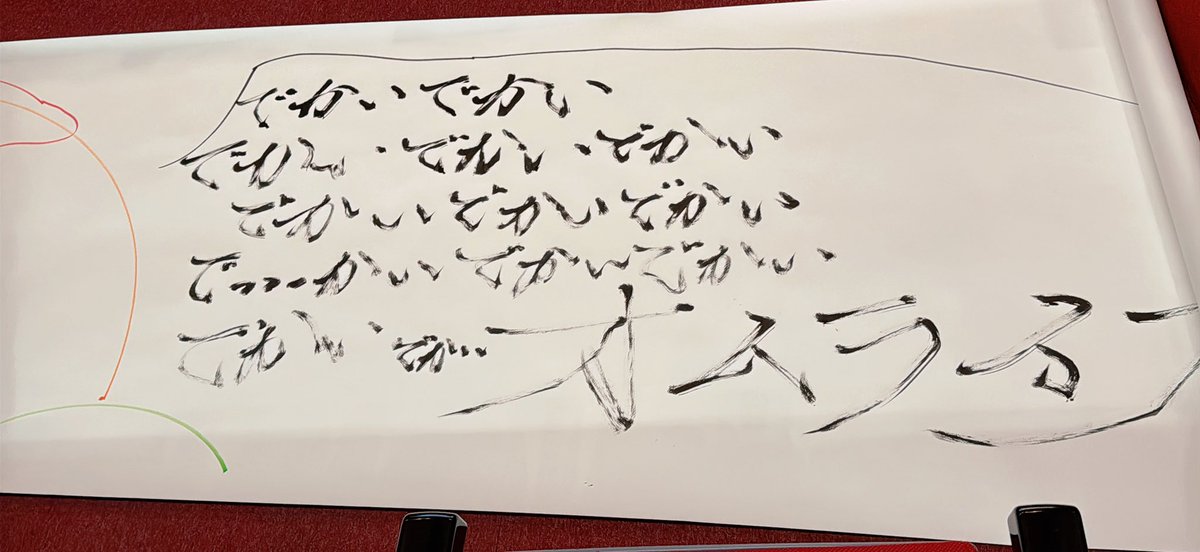 でかいでかい
でかい・でかい・でかい
でかいでかいでかい
でっっーかいでかいでかい
でかいでか…オムライス